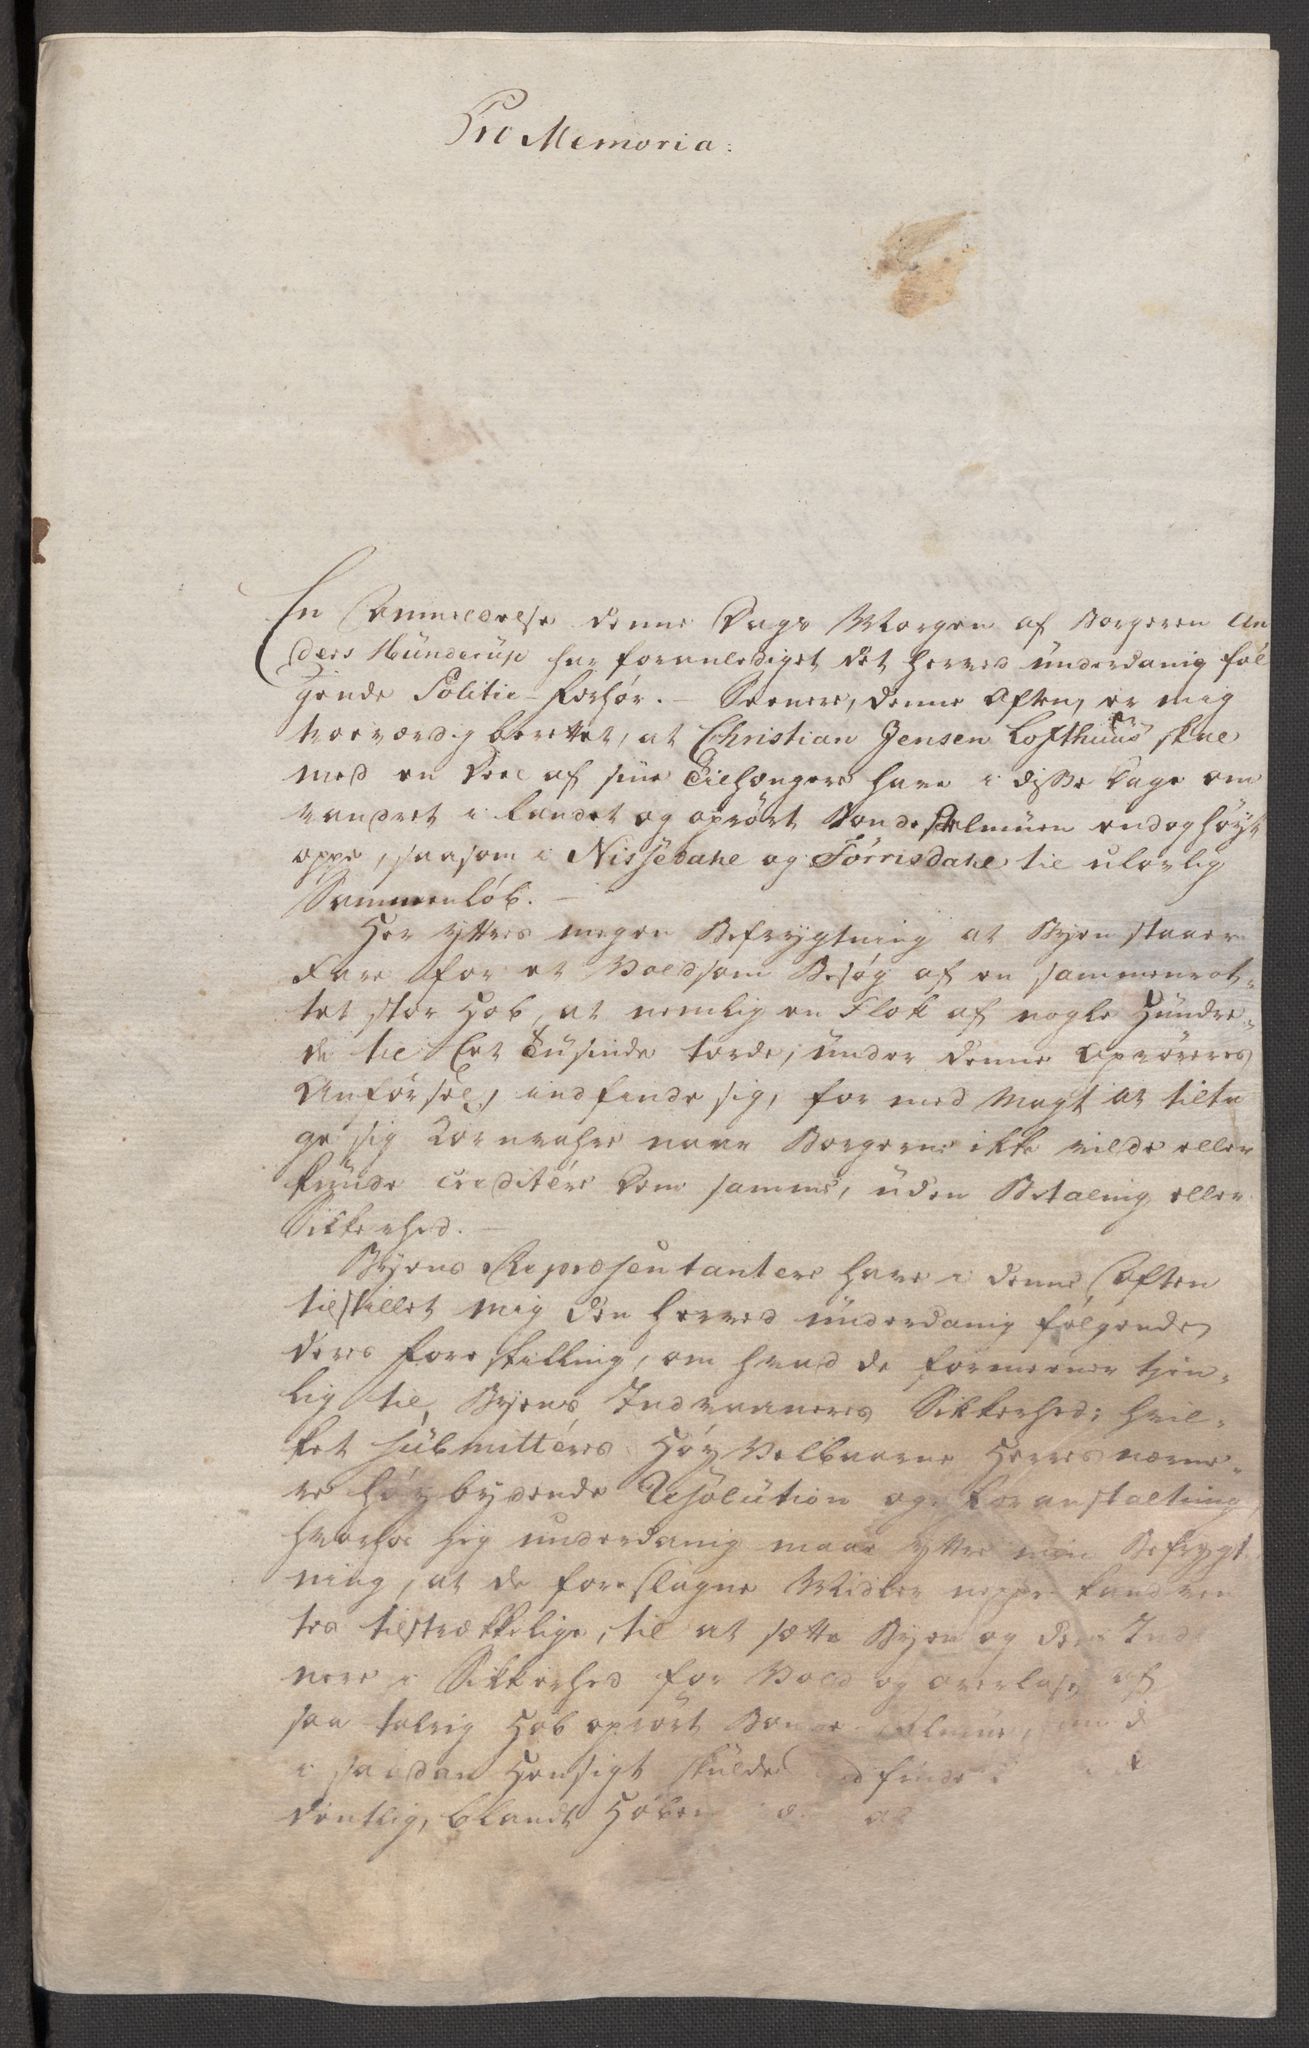 Pro Memoria:
En Anmeldelse denne Dags Morgen af Borgeren An
ders Hünderüp har foranlediget det herved ünderdanig føl
gende Politie-Forhør. – Seenere, denne Aften, er mig
troeværdig berettet, at Christian Jensen Lofthuus skal
med en Deel af sine Tilhængere have i disse Dage om
vandret i Landet og oprørt Bonde Almuen endog høyt
oppe, saasom i Nissedahl og Tørrisdahl til ulovlig
Sammenløb. –
Her yttres megen Befrygtning at Byen staaer
Fare for et Voldsom Besøg af en sammenrot-
tet stor Hob, at nemlig en Flok af nogle Hündre-
de til Eet Tüsinde torde, ünder denne Oprøreres
Anførsel, indfinde sig, for med Magt at tilta
ge sig Kornvahre naar Borgerne ikke vilde eller
künde creditere dem samme, üden Betaling eller
Sikkerhed. –
Byens Repræsentantere have i denne Aften
tilstillet mig den herved ünderdanig følgende
deres Forestilling, om hvad de formeener tjen-
lig til Byens Indvaaneres Sikkerhed; hvil-
ket submitteres Høy Velbaarne Herres nærme-
re høybydende Resolution og Foranstaltning,
hvorhos jeg underdanig maae yttre min Befrygt
ning, at de foreslagne Midler neppe kand ven
tes tilstrækkelige, til at sætte Byen og dens Ind
nere i Sikkerhed for Vold og overlast af
saa talrig Hob oprørt Bonde Almue, om d
i saadan Hensigt skulde indfinde
dentlig, blandt Hoben